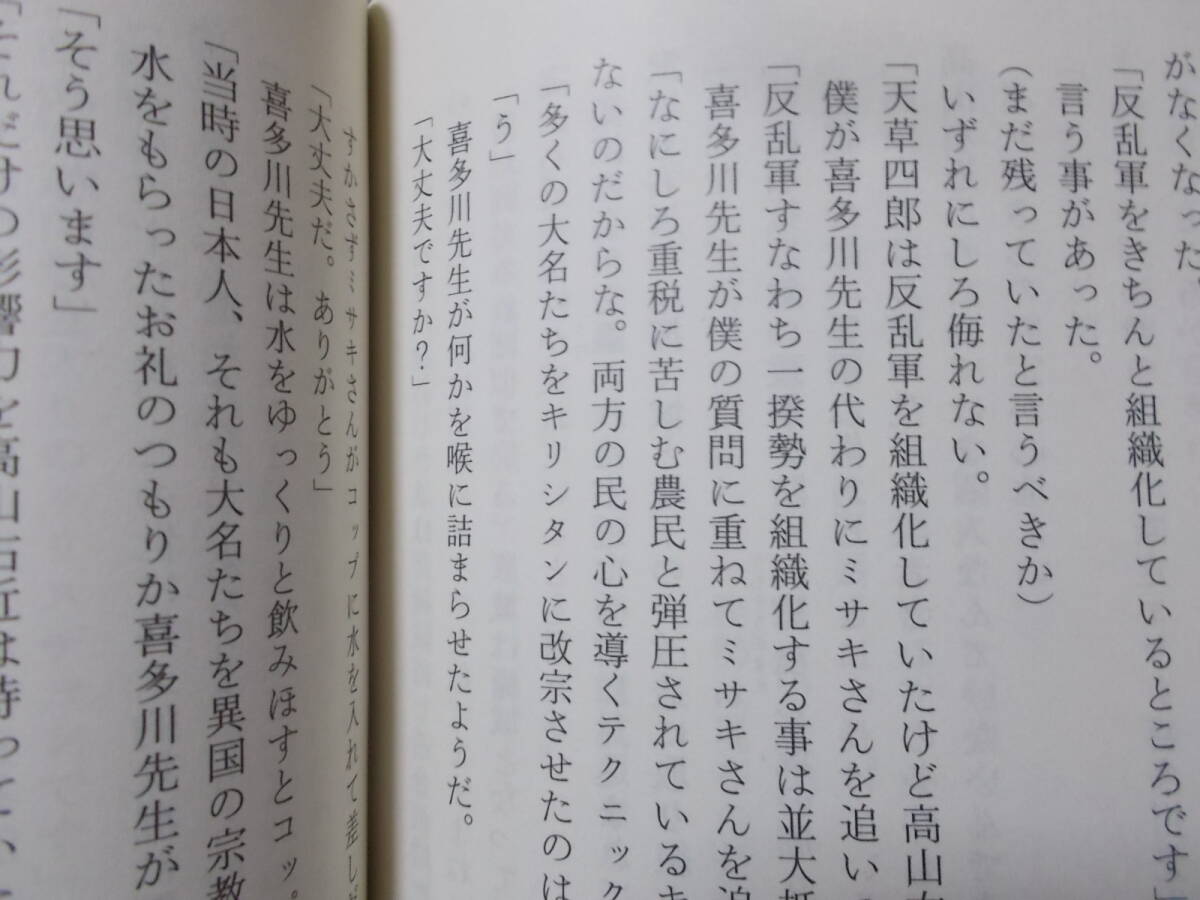 がなくなった。
「反乱軍をきちんと組織化しているところです」
言う事があった。
(まだ残っていたと言うべきか)
いずれにしろ侮れない。
「天草四郎は反乱軍を組織化していたけど高山
僕が喜多川先生の代わりにミサキさんを追い
「反乱軍すなわち一揆勢を組織化する事は並大
喜多川先生が僕の質問に重ねてミサキさんを
「なにしろ重税に苦しむ農民と弾圧されているキ
ないのだからな。両方の民の心を導くテクニック
「多くの大名たちをキリシタンに改宗させたのは
「う」
喜多川先生が何かを喉に詰まらせたようだ。
「大丈夫ですか?」
すかさずミサキさんがコップに水を入れて差し
「大丈夫だ。ありがとう」
喜多川先生は水をゆっくりと飲みほすとコッ
「当時の日本人、それも大名たちを異国の宗教
水をもらったお礼のつもりか喜多川先生が
「そう思います」
「それだけの影響力を高山右近は持って